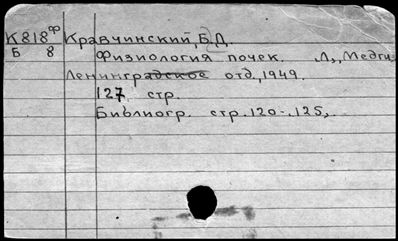 К818ф Кравчинский, Б.Д.
Б 8 Физиология почек. Л., Медги
Ленинградское отд., 1949.
127 стр.
Библиогр. стр. 120-125,